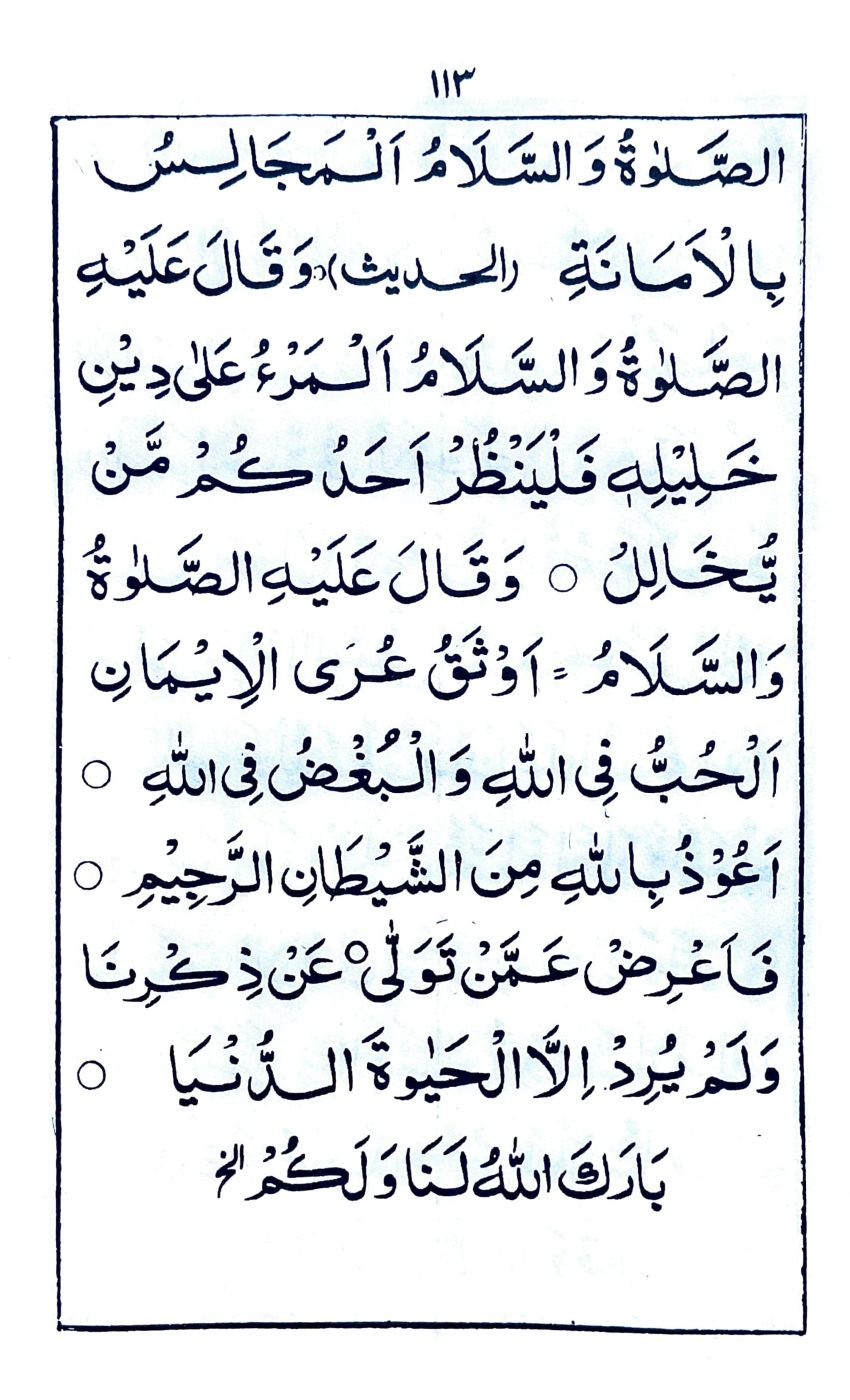 ١١٣
الصَّلٰوةُ وَالسَّلَامُ اَلْمَجَالِسُ
بِالْاَمَانَةِ (الحديث) وَقَالَ عَلَيْهِ
الصَّلٰوةُ وَالسَّلَامُ اَلْمَرْءُ عَلٰى دِيْنِ
خَلِيْلِهٖ فَلْيَنْظُرْ اَحَدُكُمْ مَّنْ
يُّخَالِلُ ○ وَقَالَ عَلَيْهِ الصَّلٰوةُ
وَالسَّلَامُ = اَوْثَقُ عُرَى الْاِيْمَانِ
اَلْحُبُّ فِى اللّٰهِ وَالْبُغْضُ فِى اللّٰهِ ○
اَعُوْذُ بِاللّٰهِ مِنَ الشَّيْطَانِ الرَّجِيْمِ ○
فَاَعْرِضْ عَمَّنْ تَوَلّٰى ○ عَنْ ذِكْرِنَا
وَلَمْ يُرِدْ اِلَّا الْحَيٰوةَ الدُّنْيَا ○
بَارَكَ اللّٰهُ لَنَا وَلَكُمْ الخ